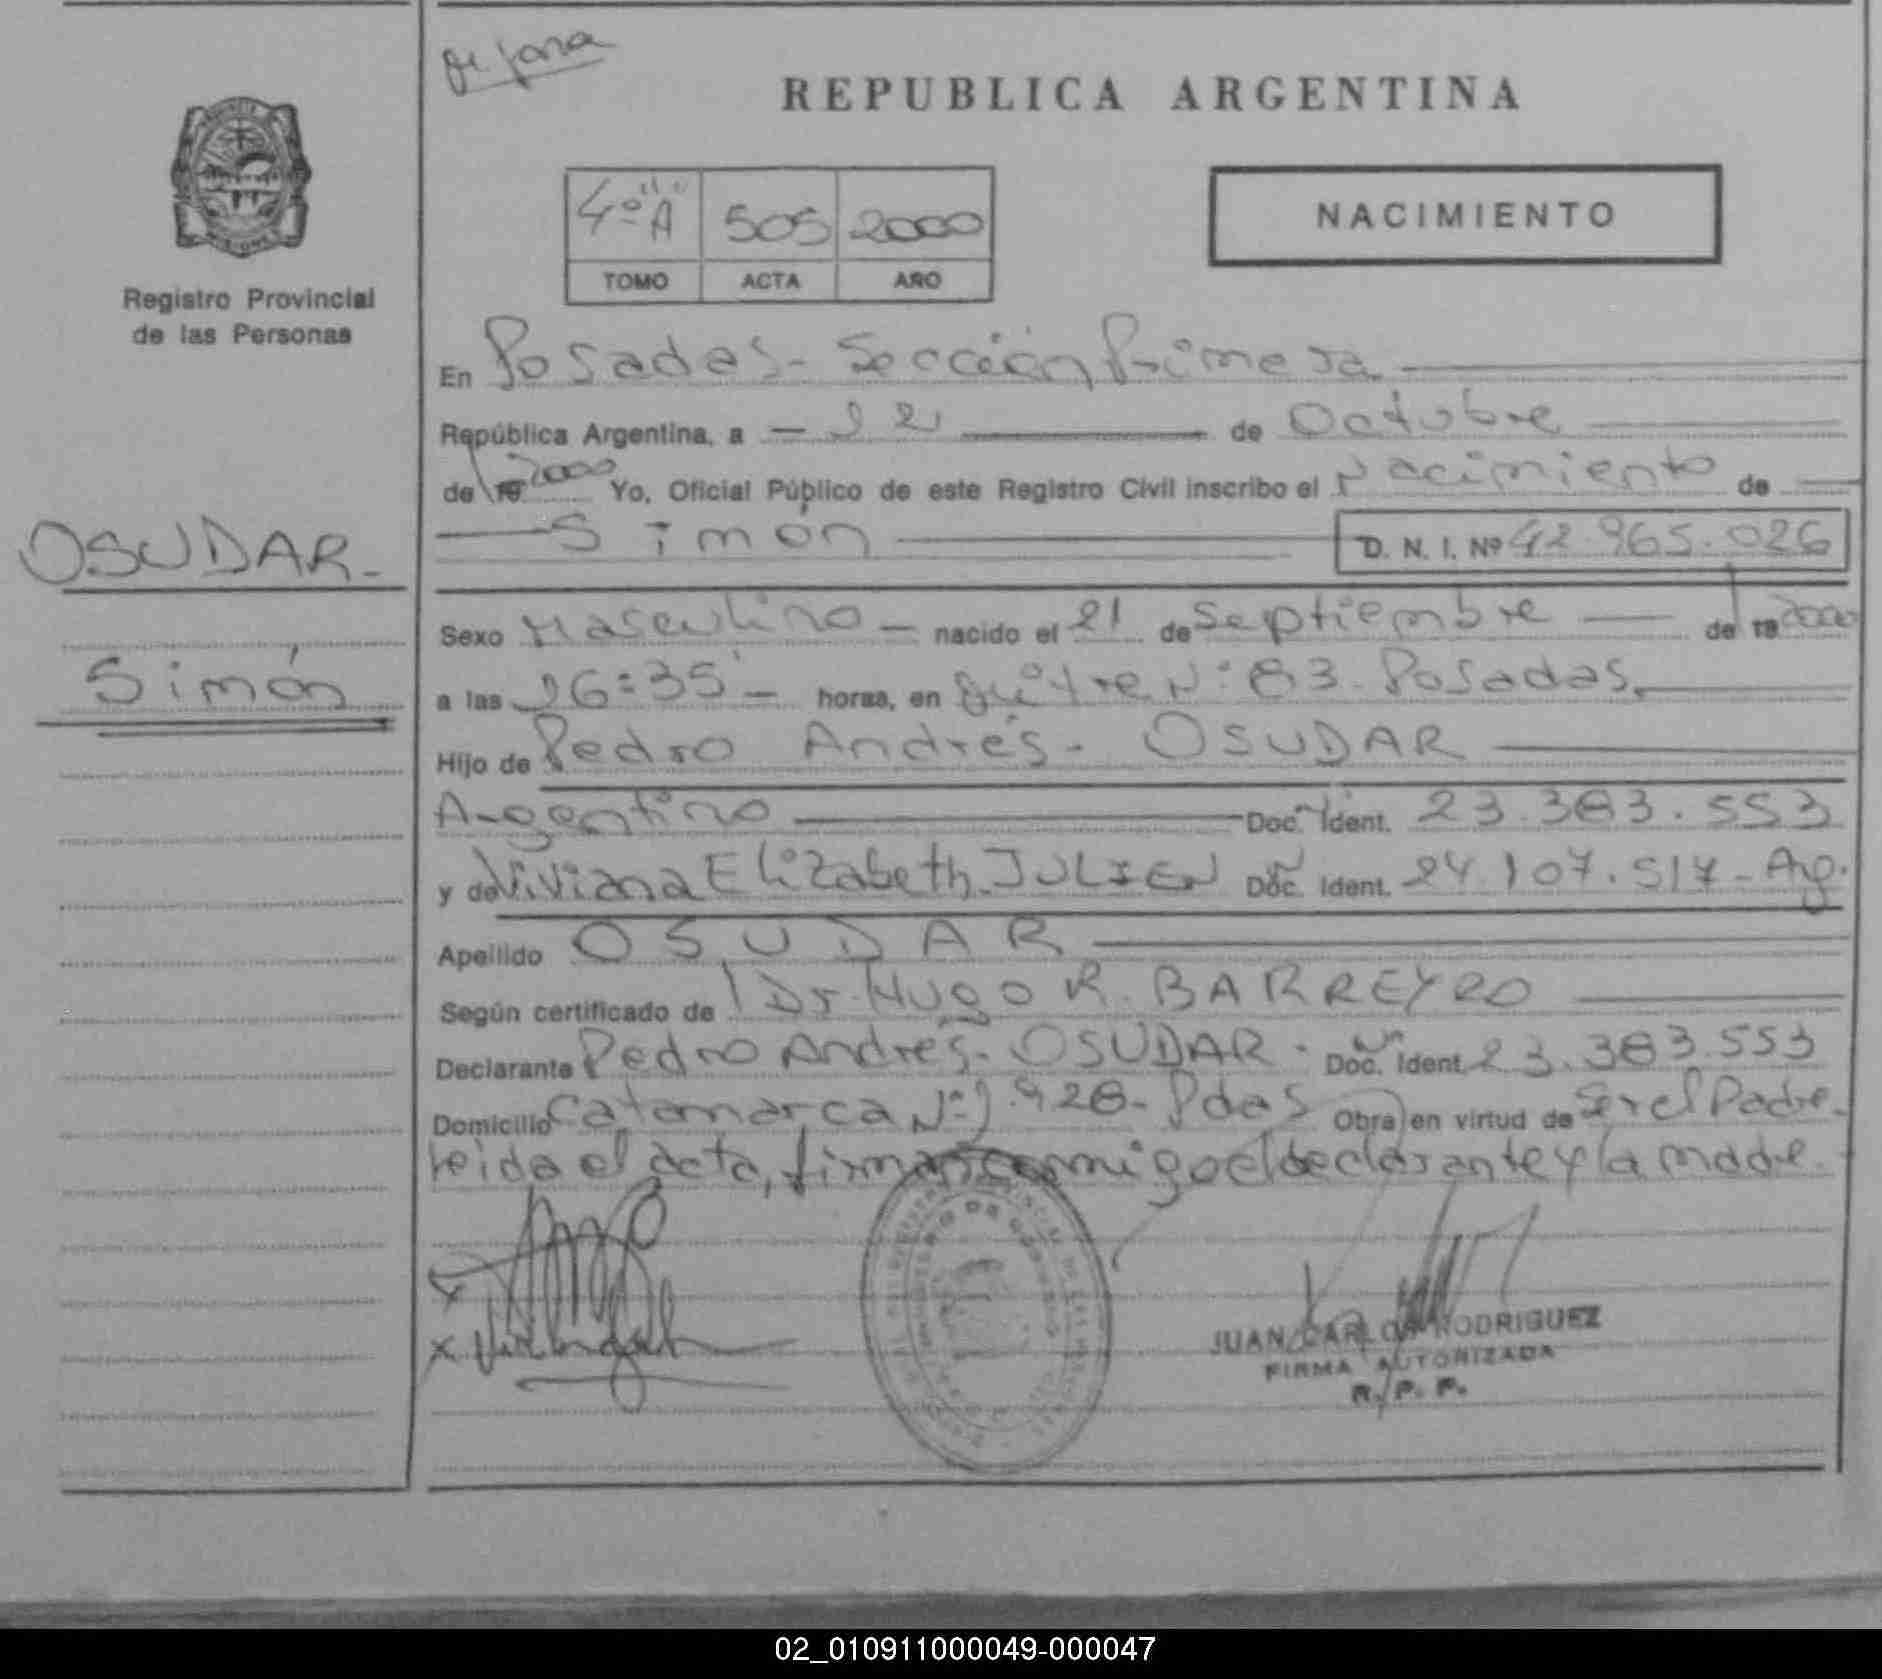 REPUBLICA ARGENTINA
Registro Provincial
de las Personas
4º "A" 505 2000
TOMO ACTA AÑO
NACIMIENTO
En Posadas - Sección Primera
República Argentina, a - 12 de Octubre
de 19 2000 Yo, Oficial Público de este Registro Civil inscribo el Nacimiento de
Simón D. N. I. Nº 42.965.026
OSUDAR -
Simón
Sexo Masculino - nacido el 21 de Septiembre de 19 2000
a las 16:35 - horas, en Nº 83 - Posadas.
Hijo de Pedro Andrés - OSUDAR
Argentino Doc. Ident. 23.383.553
y de Viviana Elizabeth JULIEN Doc. Ident. 24.107.517 - Ag.
Apellido OSUDAR
Según certificado de Dr. HUGO R. BARREYRO
Declarante Pedro Andrés - OSUDAR - Doc. Ident. 23.383.553
Domicilio Catamarca Nº 1.928 - Pdas Obra en virtud de Ser el Padre.
leida el acta, firman conmigo el declarante y la madre.
JUAN CARLOS RODRIGUEZ
FIRMA AUTORIZADA
R. P. P.
02_010911000049-000047